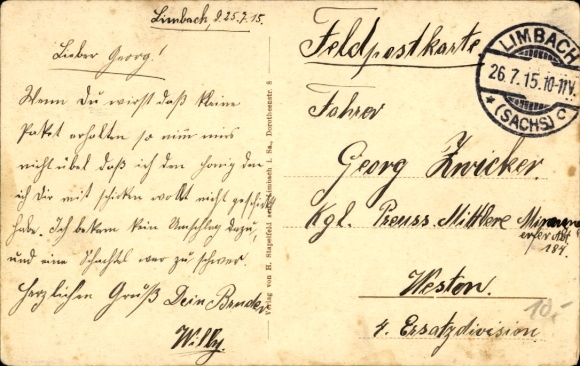 Limbach, d. 25.7.15.
Lieber Georg!
Wenn Du wirst daß kleine
Paket erhalten so nimm mirs
nicht übel daß ich den Honig den
ich Dir mit schicken wollt nicht geschickt
habe. Ich bekam kein Umschlag dazu,
und eine Schachtel war zu schwer.
Herzlichen Gruß Dein Bruder
Willy.
Verlag von H. Stapelfeld Limbach i. Sa., Dorotheenstr. 8
Feldpostkarte
LIMBACH
26.7.15.10-11V.
* (SACHS) C
Fahrer
Georg Zwicker.
Kgl. Preuss. Mittlere
184.
Westen.
4. Ersatzdivision
10,-